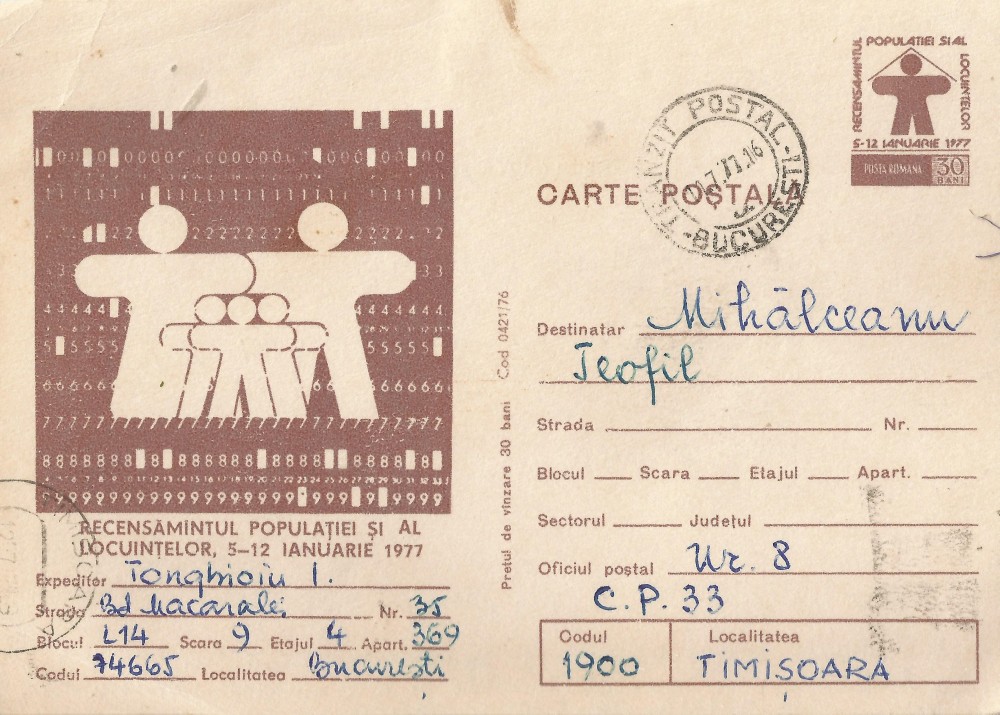 RECENSĂMÎNTUL POPULAȚIEI ȘI AL LOCUINȚELOR
5-12 IANUARIE 1977
POȘTA ROMÂNA 30 BANI
TRANZIT POSTAL-TTI-BUCUREȘTI
77.16
CARTE POȘTALĂ
0000000
1111111
2222222
3333
44444
555555
666666
77777777777777777777777777777777
8888888888888888888888
9999999999999999999999
RECENSĂMÎNTUL POPULAȚIEI ȘI AL
LOCUINȚELOR, 5–12 IANUARIE 1977
Expeditor Tonghioiu I.
Strada Bd Macaralei Nr. 35
Blocul L14 Scara 9 Etajul 4 Apart. 369
Codul 74665 Localitatea București
Prețul de vînzare 30 bani Cod 0421/76
Destinatar Mihălceanu
Teofil
Strada Nr.
Blocul Scara Etajul Apart.
Sectorul Județul
Oficiul poștal Nr. 8
C.P. 33
Codul Localitatea
1900 TIMIȘOARA